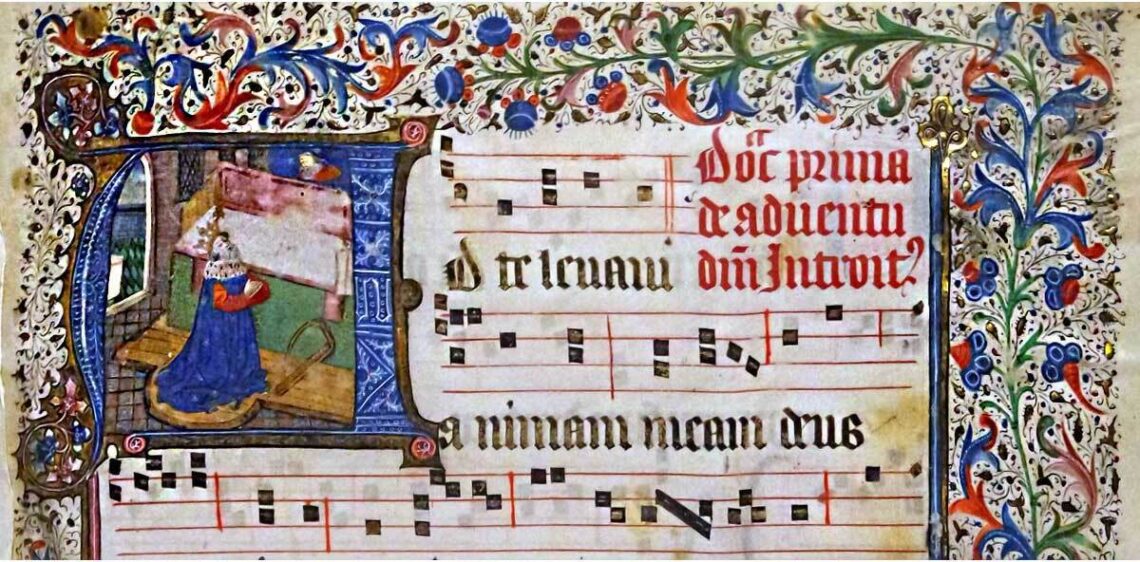 Dōc prima
de aduentu
dñi Introit
AD te leuaui
animam meam deus